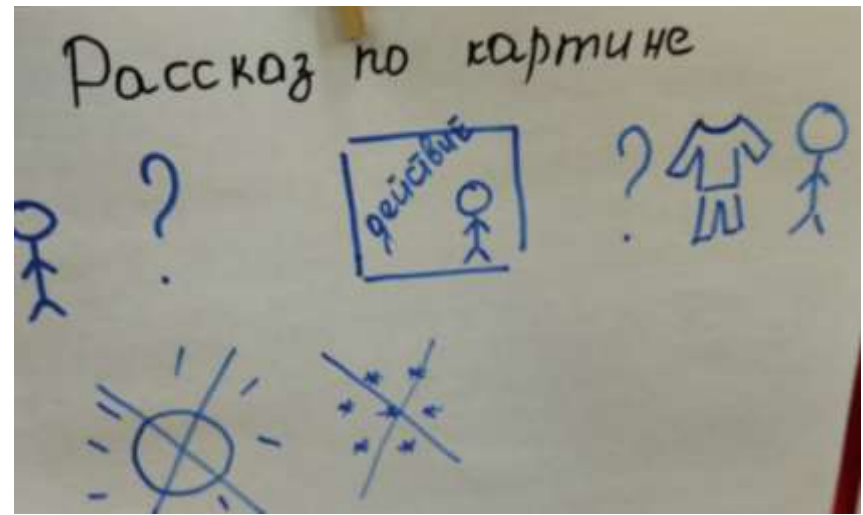 Рассказ по картине
?
действие
?